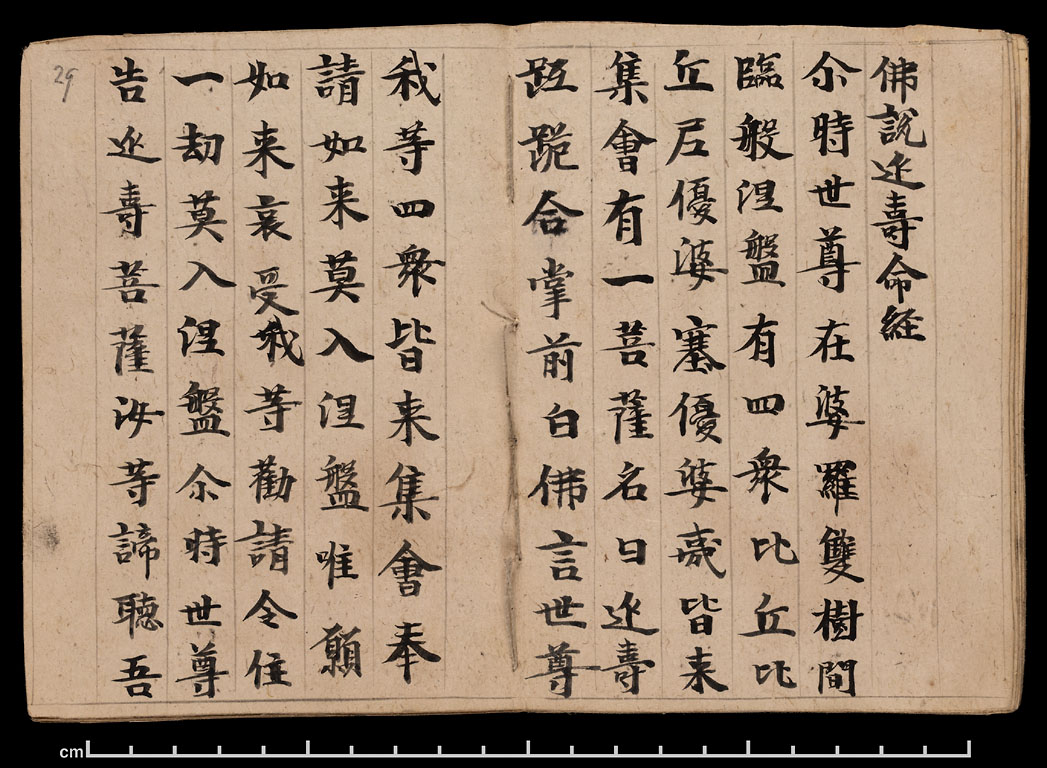 佛說延壽命経
尒時世尊在婆羅雙樹間
臨般涅盤有四衆比丘比
丘尼優婆塞優婆夷皆来
集會有一菩薩名曰延壽
踋跪合掌前白佛言世尊
我等四衆皆来集會奉
請如来莫入涅盤唯願
如来哀受我等勸請令住
一劫莫入涅盤尒時世尊
告延壽菩薩汝等諦聽吾
29
cm